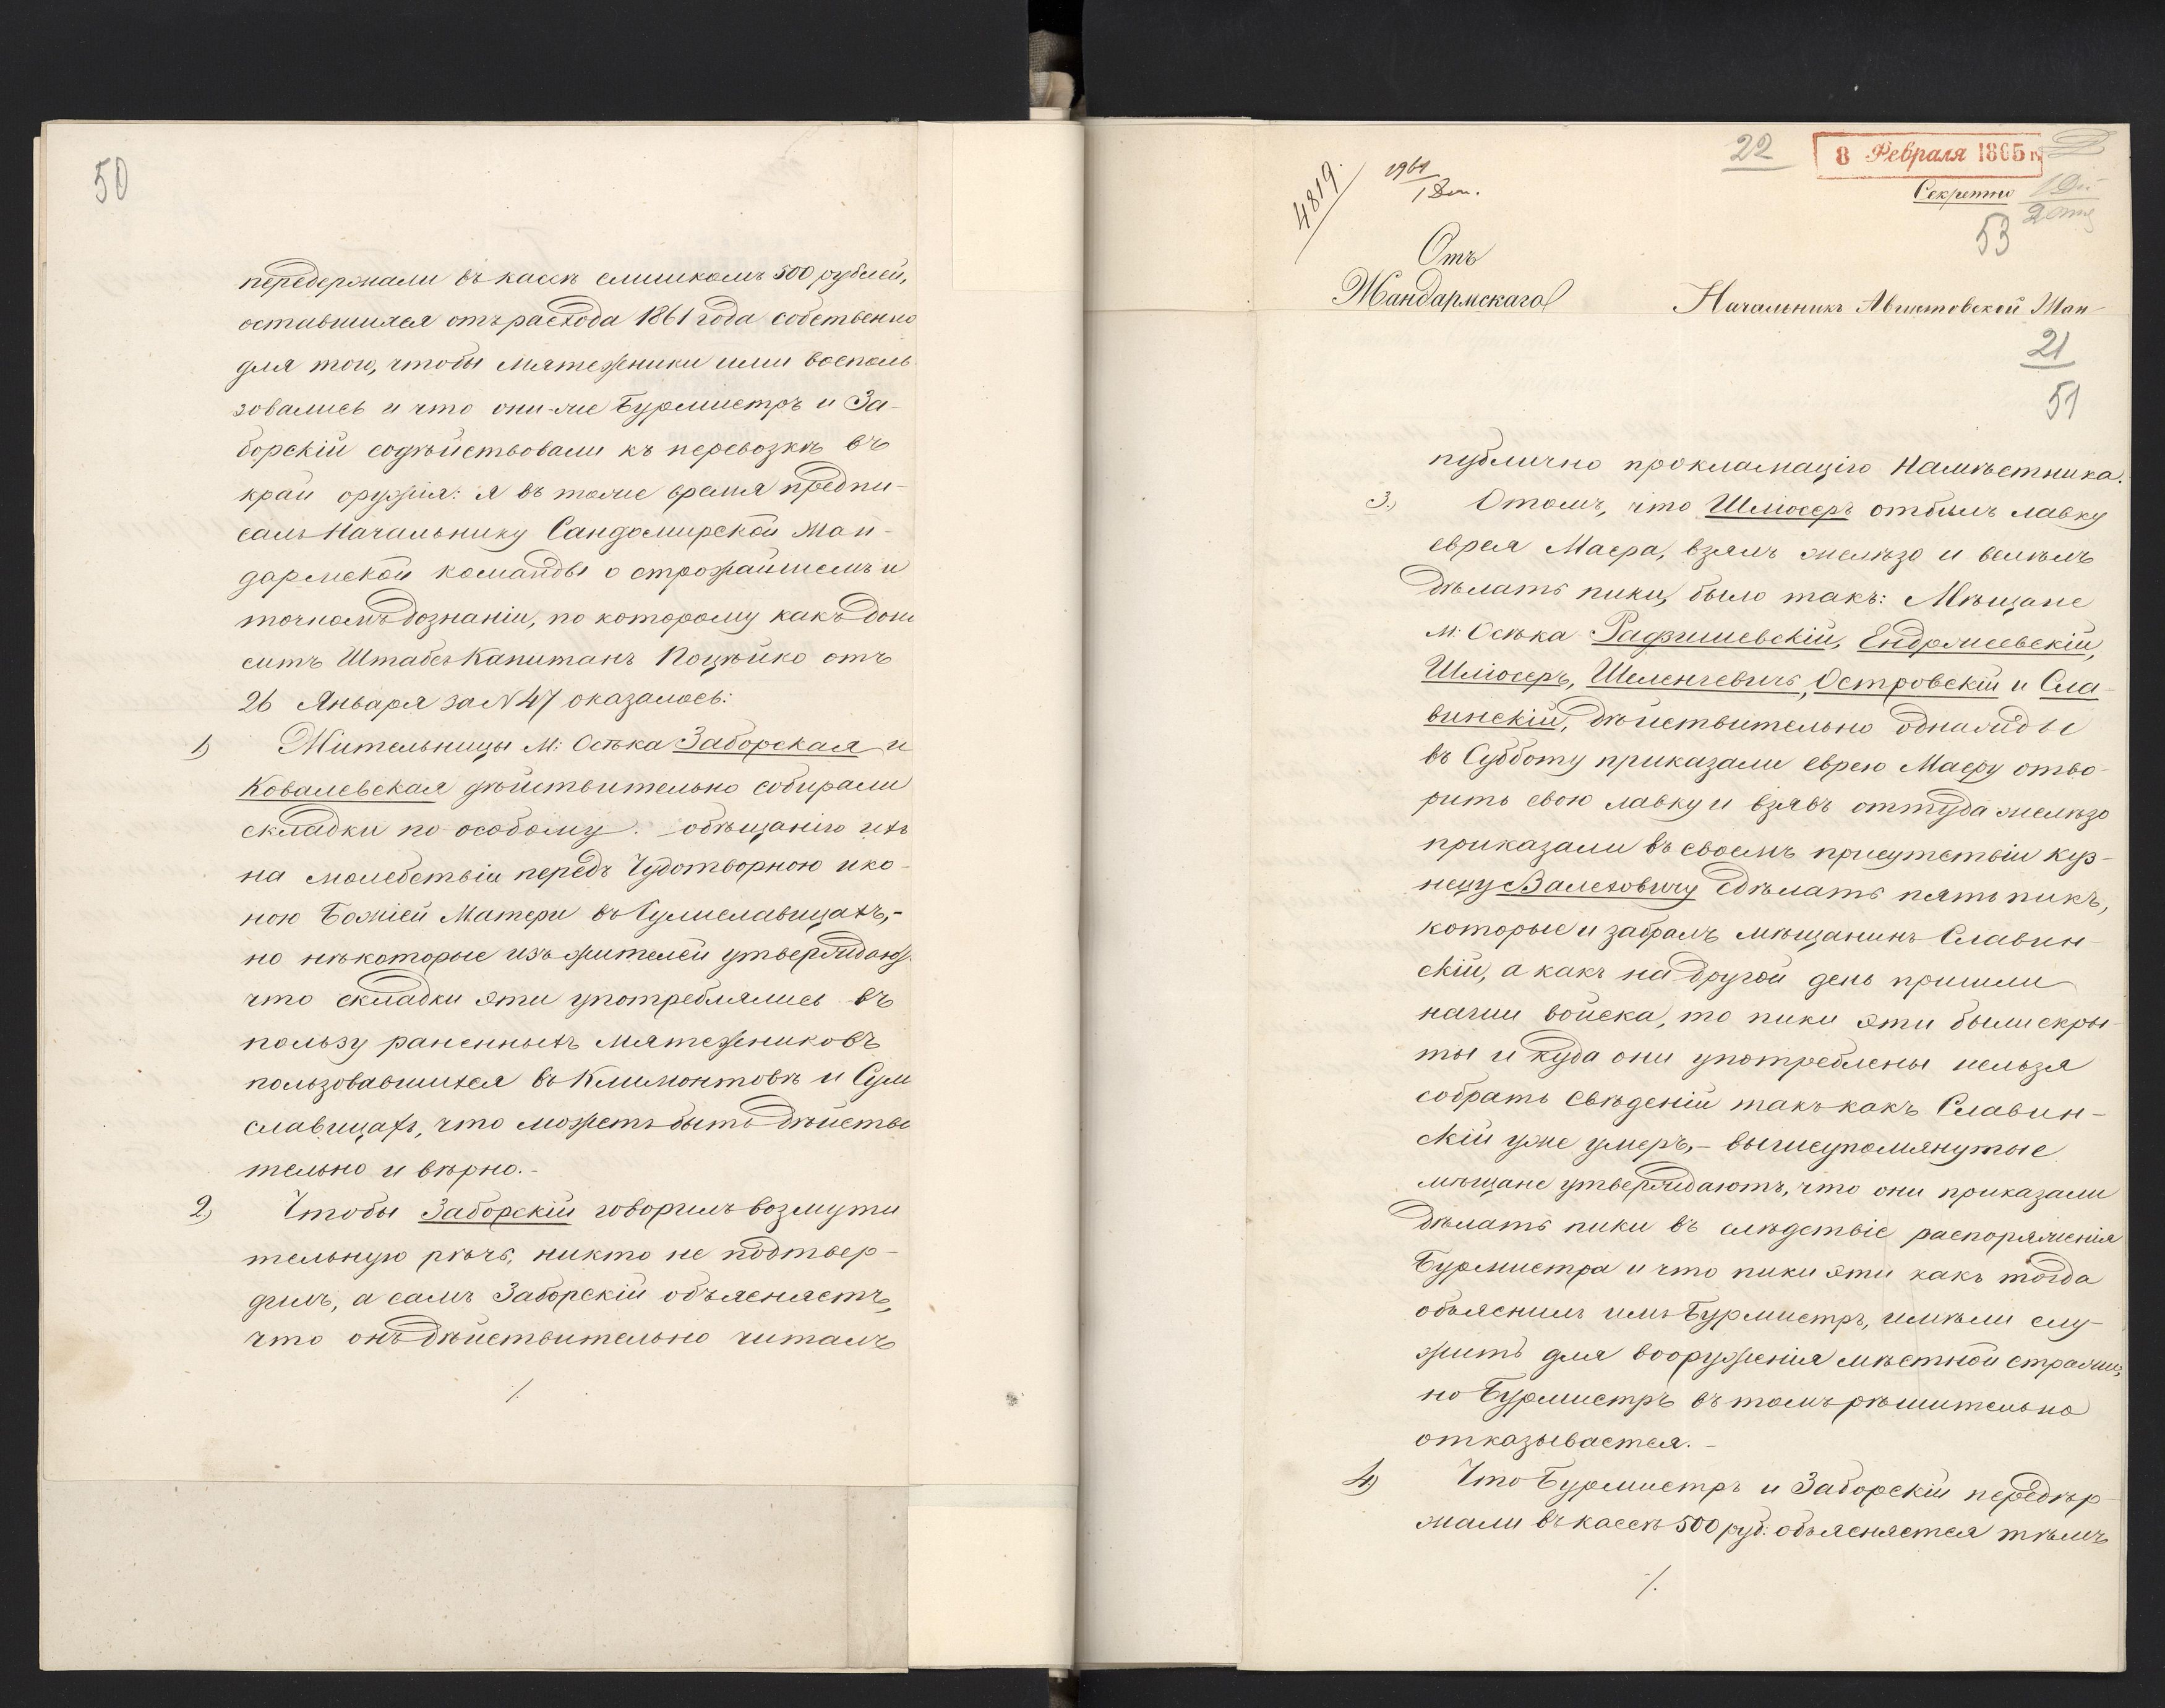 50
передержали въ кассѣ слишкомъ 500 рублей,
оставшихся отъ расхода 1861 года собственно
для того, чтобы мятежники ими восполь
зовались и что они-же Бурмистръ и За-
борскій содѣйствовали къ перевозкѣ въ
край оружія: я въ тоже время предпи-
салъ Начальнику Сандомирской Жан-
дармской команды о строжайшемъ и
точномъ дознаніи, по которому какъ доно
ситъ Штабсъ Капитанъ Поцѣйко отъ
26 Января за N 47 оказалось:
1) Жительницы М: Осѣка Заборская и
Ковалевская дѣйствительно собирали
складки по особому обѣщанію ихъ
на молебствія передъ Чудотворною ико-
ною Божіей Матери въ Сулиславицахъ,-
но нѣкоторые изъ жителей утверждаю
что складки эти употреблялись въ
пользу раненныхъ мятежниковъ
пользовавшихся въ Климонтовѣ и Сули
славицахъ, что можетъ быть дѣйстви
тельно и вѣрно.-
2) Чтобы Заборскій говорилъ возмути
тельную рѣчь, никто не подтвер-
дилъ, а самъ Заборскій объясняетъ,
что онъ дѣйствительно читалъ
/.
4819.
1961
22
8 Февраля 1865 г.
Секретно
53
Отъ
Жандармскаго
Начальникъ Августовской Жан-
21
51
публично прокламацію Намѣстника.
3.) О томъ, что Шлюсеръ отбилъ лавку
еврея Маера, взялъ желѣзо и велѣлъ
дѣлать пики, было такъ: Мѣщане
м: Осѣка Рафишевскій, Ендржеевскій,
Шлюсеръ, Шеленгевичъ, Островскій и Сла-
винскій, дѣйствительно однажды
въ Субботу приказали еврею Маеру отво-
рить свою лавку и взявъ оттуда желѣзо
приказали въ своемъ присутствіи куз-
нецу Валеховичу сдѣлать пять пикъ,
которые и забралъ мѣщанинъ Славин-
скій, а какъ на другой день пришли
наши войска, то пики эти были скры-
ты и куда они употреблены нельзя
собрать свѣденій такъ какъ Славин-
скій уже умеръ,- вышеупомянутые
мѣщане утверждаютъ, что они приказали
дѣлать пики въ слѣдствіе распоряженія
Бурмистра и что пики эти какъ тогда
объяснилъ имъ Бурмистръ, имѣли слу-
жить для вооруженія мѣстной стражи,
но Бурмистръ въ томъ рѣшительно
отказывается.-
4) Что Бурмистръ и Заборскій передѣр-
жали въ кассѣ 500 руб: объясняется тѣмъ
/.